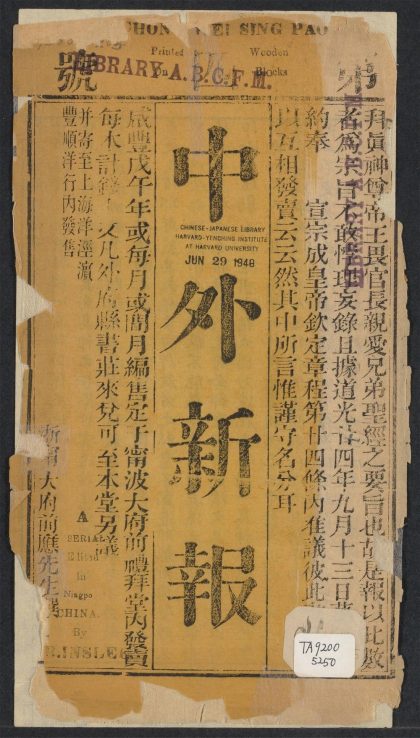 CHON EI SING PAO
Printed Wooden
Blocks
LIBRARY A.B.C.F.M.
號
拜眞神尊帝王畏官長親愛兄弟聖經之要旨也故是報以此數
者爲宗旨不敢悖理妄錄且據道光廿四年九月十三日
約奉 宣宗成皇帝欽定章程第廿四條內准議彼此
以互相發賣云云然其中所言惟謹守名分耳
中外新報
CHINESE-JAPANESE LIBRARY
HARVARD-YENCHING INSTITUTE
AT HARVARD UNIVERSITY
JUN 29 1948
咸豐戊午年或每月或間月編售定于甯波大府前禮拜堂內發賣
每本計錢 文凡外府縣書莊來兌可至本堂另議
并寄至上海洋涇濱
豐順洋行內發售
大府前應先生撰
A
SERIAL
Edited
In
Ningpo
CHINA.
By
INSLEE
TA9200
5250